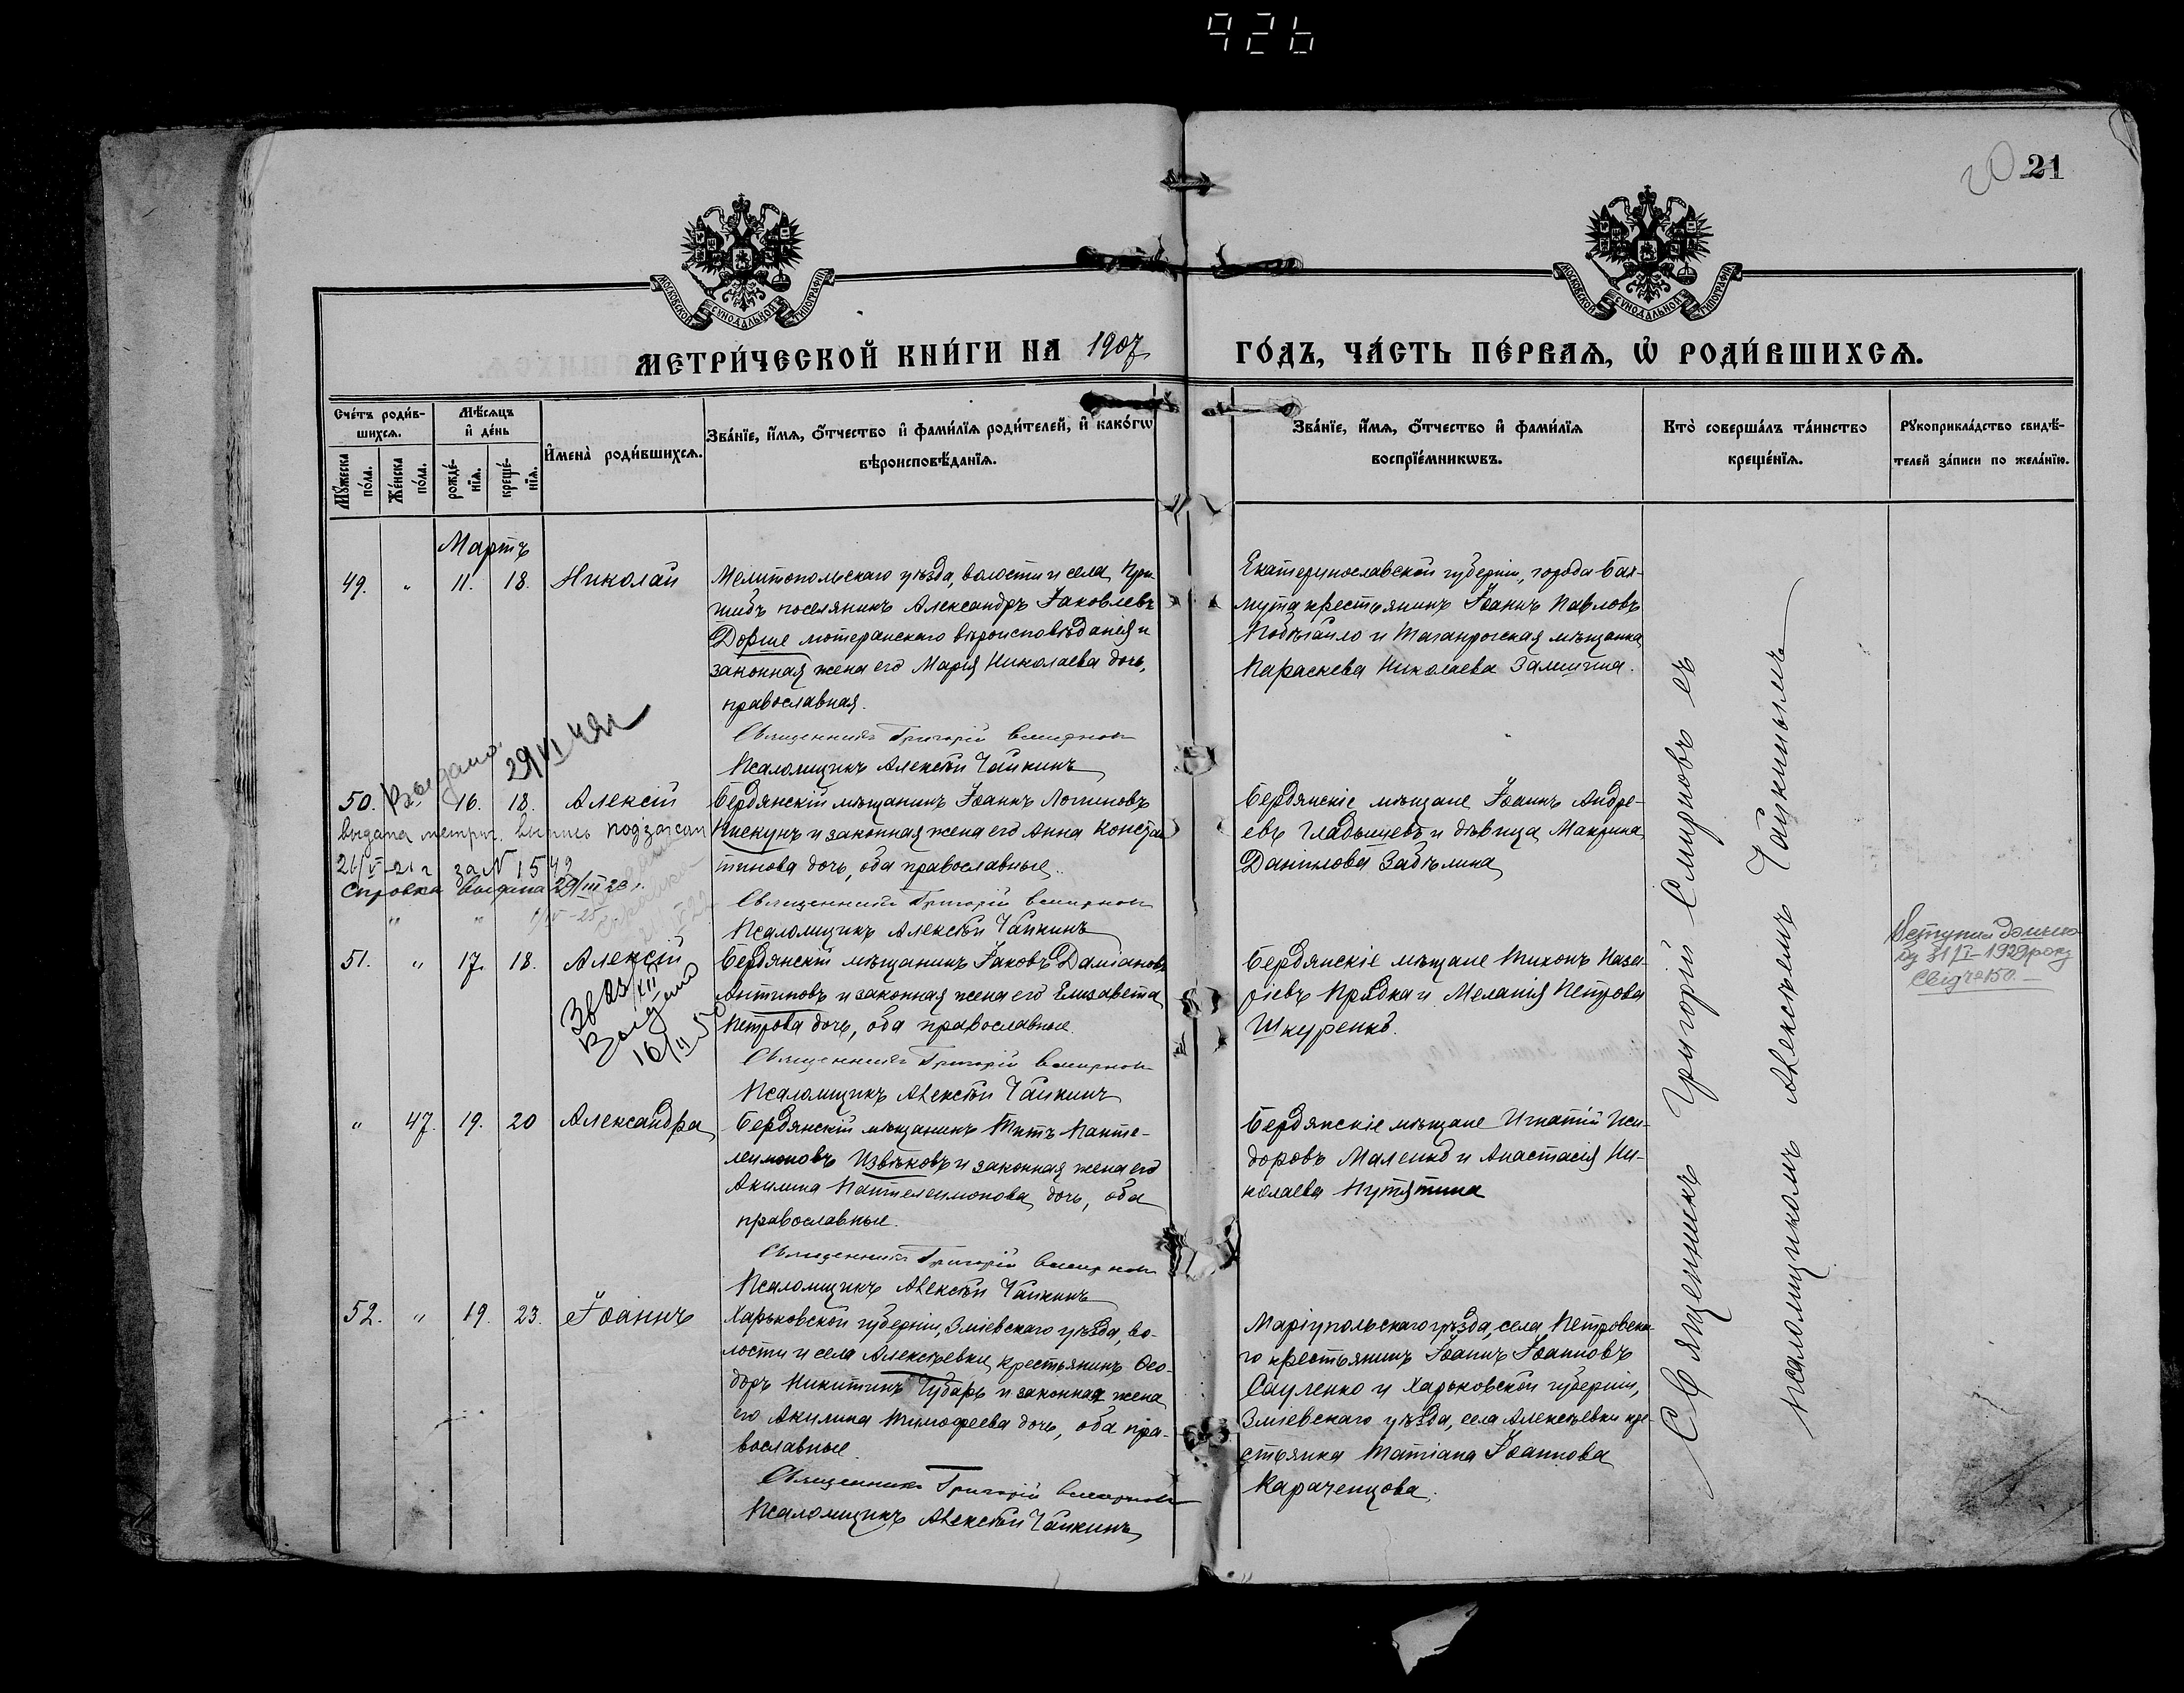 926
20 21
МОСКОВСКОЙ СѴНОДАЛЬНОЙ ТИПОГРАФІИ
МОСКОВСКОЙ СѴНОДАЛЬНОЙ ТИПОГРАФІИ
МЕТРИ́ЧЕСКОЙ КНИ́ГИ НА 1907
ГО́ДЪ, ЧА́СТЬ ПЕ́РВАѦ, Ѡ҆ РОДИ́ВШИХСѦ.
Сче́тъ роди́в-
шихсѧ.
Мѣ́сѧцъ
и҆ де́нь
Мꙋ́жеска
по́ла.
Же́нска
по́ла.
рожде́-
нїѧ.
креще́-
нїѧ.
И҆мена̀ роди́вшихсѧ.
Зва́нїе, и҆́мѧ, ѻ҆́тчество и҆ фами́лїѧ роди́телей, и҆ како́гѡ
вѣроисповѣ́данїѧ.
Зва́нїе, и҆́мѧ, ѻ҆́тчество и҆ фами́лїѧ
воспрїе́мникѡвъ.
Кто̀ соверша́лъ та́инство
креще́нїѧ.
Рꙋкоприкла́дство свидѣ́-
телей за́писи по жела́нїю.
Мартъ
49. " 11. 18. Николай
Мелитопольскаго уѣзда, волости и села При-
шибъ поселянинъ Александръ Іаковлевъ
Дорше лютеранскаго вѣроисповѣданія и
законная жена его Марія Николаева дочь,
православная.
Священникъ Григорій Смирновъ
Псаломщикъ Алексѣй Чайкинъ
Екатеринославской губерніи, города Бах-
мута крестьянинъ Іоаннъ Павловъ
Побѣгайло и Таганрогская мѣщанка
Параскева Николаева
Выдано 29/VI
50. 16. 18. Алексій
выдана метрич. выпись
26/V-21 г за № 1549
Справка выдана 29/III 23 г.
Бердянскій мѣщанинъ Іоаннъ Логиновъ
Пискунъ и законная жена его Анна Констан
тинова дочь, оба православные.
Священникъ Григорій Смирновъ
Псаломщикъ Алексѣй Чайкинъ
Бердянскіе мѣщане Іоаннъ Андре-
евъ Гладышевъ и дѣвица Макрина
Даніилова Забѣлина
51. " 17. 18. Алексій
16/II 50
Бердянскій мѣщанинъ Іаковъ Даміановъ
Антиповъ и законная жена его Елизавета
Петрова дочь, оба православные.
Священникъ Григорій Смирновъ
Псаломщикъ Алексѣй Чайкинъ
Бердянскіе мѣщане Тихонъ Наза-
ріевъ Прядка и Меланія Петрова
Шкуренко.
31/VI-1929 року
150.
" 47. 19. 20 Александра
Бердянскій мѣщанинъ Титъ Панте-
леимоновъ Извѣковъ и законная жена его
Акилина Пантелеимонова дочь, оба
православные.
Священникъ Григорій Смирновъ
Псаломщикъ Алексѣй Чайкинъ
Бердянскіе мѣщане Игнатій Иси-
доровъ Маленко и Анастасія Ни-
колаева Путятина
52. " 19. 23. Іоаннъ
Харьковской губерніи, Зміевскаго уѣзда, во-
лости и села Алексѣевки крестьянинъ Ѳео-
доръ Никитинъ Чубарь и законная жена
его Акилина Тимофеева дочь, оба пра-
вославные.
Священникъ Григорій Смирновъ
Псаломщикъ Алексѣй Чайкинъ
Маріупольскаго уѣзда, села Петровска-
го крестьянинъ Іоаннъ Іоанновъ
Сауленко и Харьковской губерніи,
Зміевскаго уѣзда, села Алексѣевки кре-
стьянка Татіана Іоаннова
Караченцова.
Священникъ Григорій Смирновъ съ
псаломщикомъ Алексѣемъ Чайкинымъ